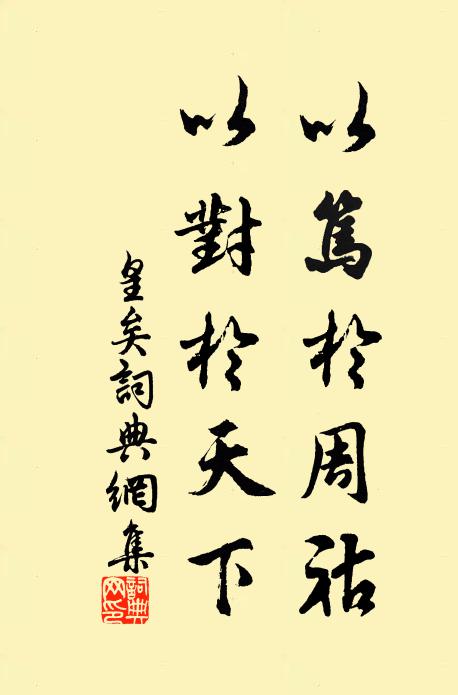 以篤於周祜
以對於天下
皇矣詞典網集
詞典网印